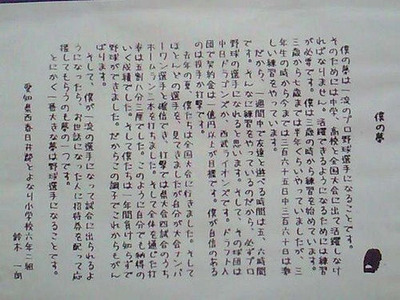 僕の夢
僕の夢は一流のプロ野球選手になることです。
そのためには中学、高校と全国大会に出て活躍しなけ
ればなりません。活躍できるようになるためには練習
が必要です。僕は三歳の時から練習を始めています。
三歳から七歳までは半年くらいやっていましたが、三
年生の時から今までは三百六十五日中三百六十日は激
しい練習をやっています。
だから、一週間中で友達と遊べる時間は五、六時間
です。そんなに練習をやっているのだから、必ずプロ
野球の選手になれると思います。そして、その球団は
中日ドラゴンズか、西武ライオンズです。ドラフト入
団で契約金は一億円以上が目標です。僕が自信のある
のは投手か打撃です。
去年の夏、僕たちは全国大会に行きました。そして
ほとんどの選手を見てきましたが自分が大会ナンバ
ーワン選手と確信でき、打撃では県大会四試合のうち
ホームラン三本を打ちました。そして、全体を通した打
率は五割八分三厘でした。このように自分でも納得の
いく成績でした。そして、僕たちは一年間負け知らずで
野球ができました。だから、この調子でこれからもがん
ばります。
そして、僕が一流の選手になって試合に出られるよ
うになったら、お世話になった人に招待券を配って応
援してもらうのも夢の一つです。
とにかく一番大きな夢は野球選手になることです。
愛知県西春日井郡とよなり小学校六年二組
鈴木一朗